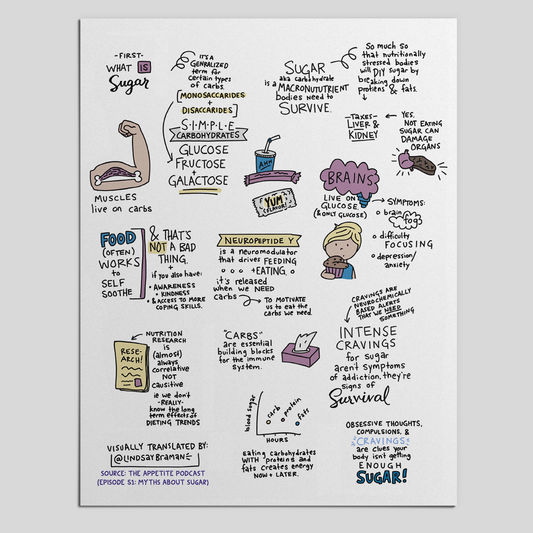 -FIRST-
WHAT IS
Sugar
IT'S A
GENRALIZED
term for
certain types
of carbs.
[MONOSACCARIDES
+
DISACCARIDES]
S·I·M·P·L·E
CARBOHYDRATES
GLUCOSE
FRUCTOSE
+
GALACTOSE
SUGAR
aka carbohydrate
is a MACRONUTRIENT
bodies need to
SURVIVE.
So much so
that nutritionally
stressed bodies
will DIY sugar by
breaking down
protiens & fats.
-TAXES-
LIVER &
KIDNEY
YES,
NOT EATING
SUGAR CAN
DAMAGE
ORGANS
MUSCLES
live on carbs
AHH
YUM
FLAVOR
BRAINS
LIVE ON
GLUCOSE
(& ONLY GLUCOSE)
SYMPTOMS:
brain fog
difficulty
FOCUSING
depression/
anxiety
FOOD
(OFTEN)
WORKS
to
SELF
SOOTHE
& THAT'S
NOT A BAD
THING.
+
if you also have:
• AWARENESS
• KINDNESS
• & ACCESS TO MORE
COPING SKILLS.
NEUROPEPTIDE Y
is a neuromodulator
that drives FEEDING
+EATING.
it's released
when we NEED
carbs
TO MOTIVATE
us to eat the
carbs we need.
CRAVINGS ARE
NEUROCHEMICALLY
BASED ALERTS
THAT WE NEED
SOMETHING
INTENSE
CRAVINGS
for sugar
aren't symptoms
of addiction, they're
signs of
Survival
RESE-
ARCH!
NUTRITION
RESEARCH
is
(almost)
always
correlative
NOT
causitive
ie we don't
-REALLY-
know the long
term effects of
DIETING TRENDS
"CARBS"
are essential
building blocks
for the immune
system.
blood sugar
carb
protein
fats
HOURS
eating carbohydrates
WITH proteins and
fats creates energy
NOW + LATER.
OBSESSIVE THOUGHTS,
COMPULSIONS, &
CRAVINGS
are clues your
body isn't getting
ENOUGH
SUGAR!
VISUALLY TRANSLATED BY:
@LINDSAYBRAMAN
SOURCE: THE APPETITE PODCAST
(EPISODE 51: MYTHS ABOUT SUGAR)